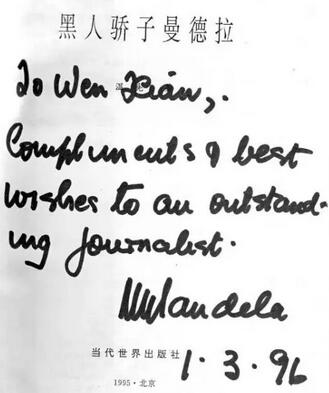 黑人骄子曼德拉
To Wen Xian,.
Compliments & best
wishes to an outstand-
ing journalist.
NMandela
当代世界出版社
1.3.96
1995·北京